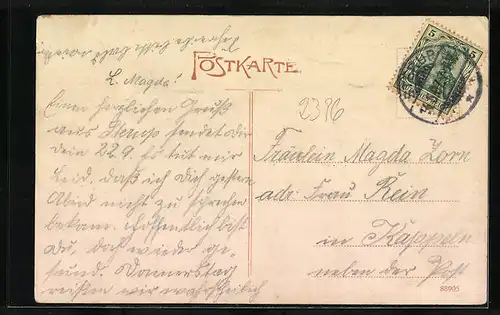 POSTKARTE
L. Magda!
Einen herzlichen Gruß
aus Sterup sendet dir
dein 22.9. Es tut mir
leid, daß ich Dich gestern
Abend nicht zu sprechen
bekam. Hoffentlich bist
Du, doch wieder ge-
sund. Donnerstag
reisen wir wahrscheinlich
2386
5
5
Fräulein Magda Zorn
adr. Frau Rein
in Kappeln
neben der Post
88905